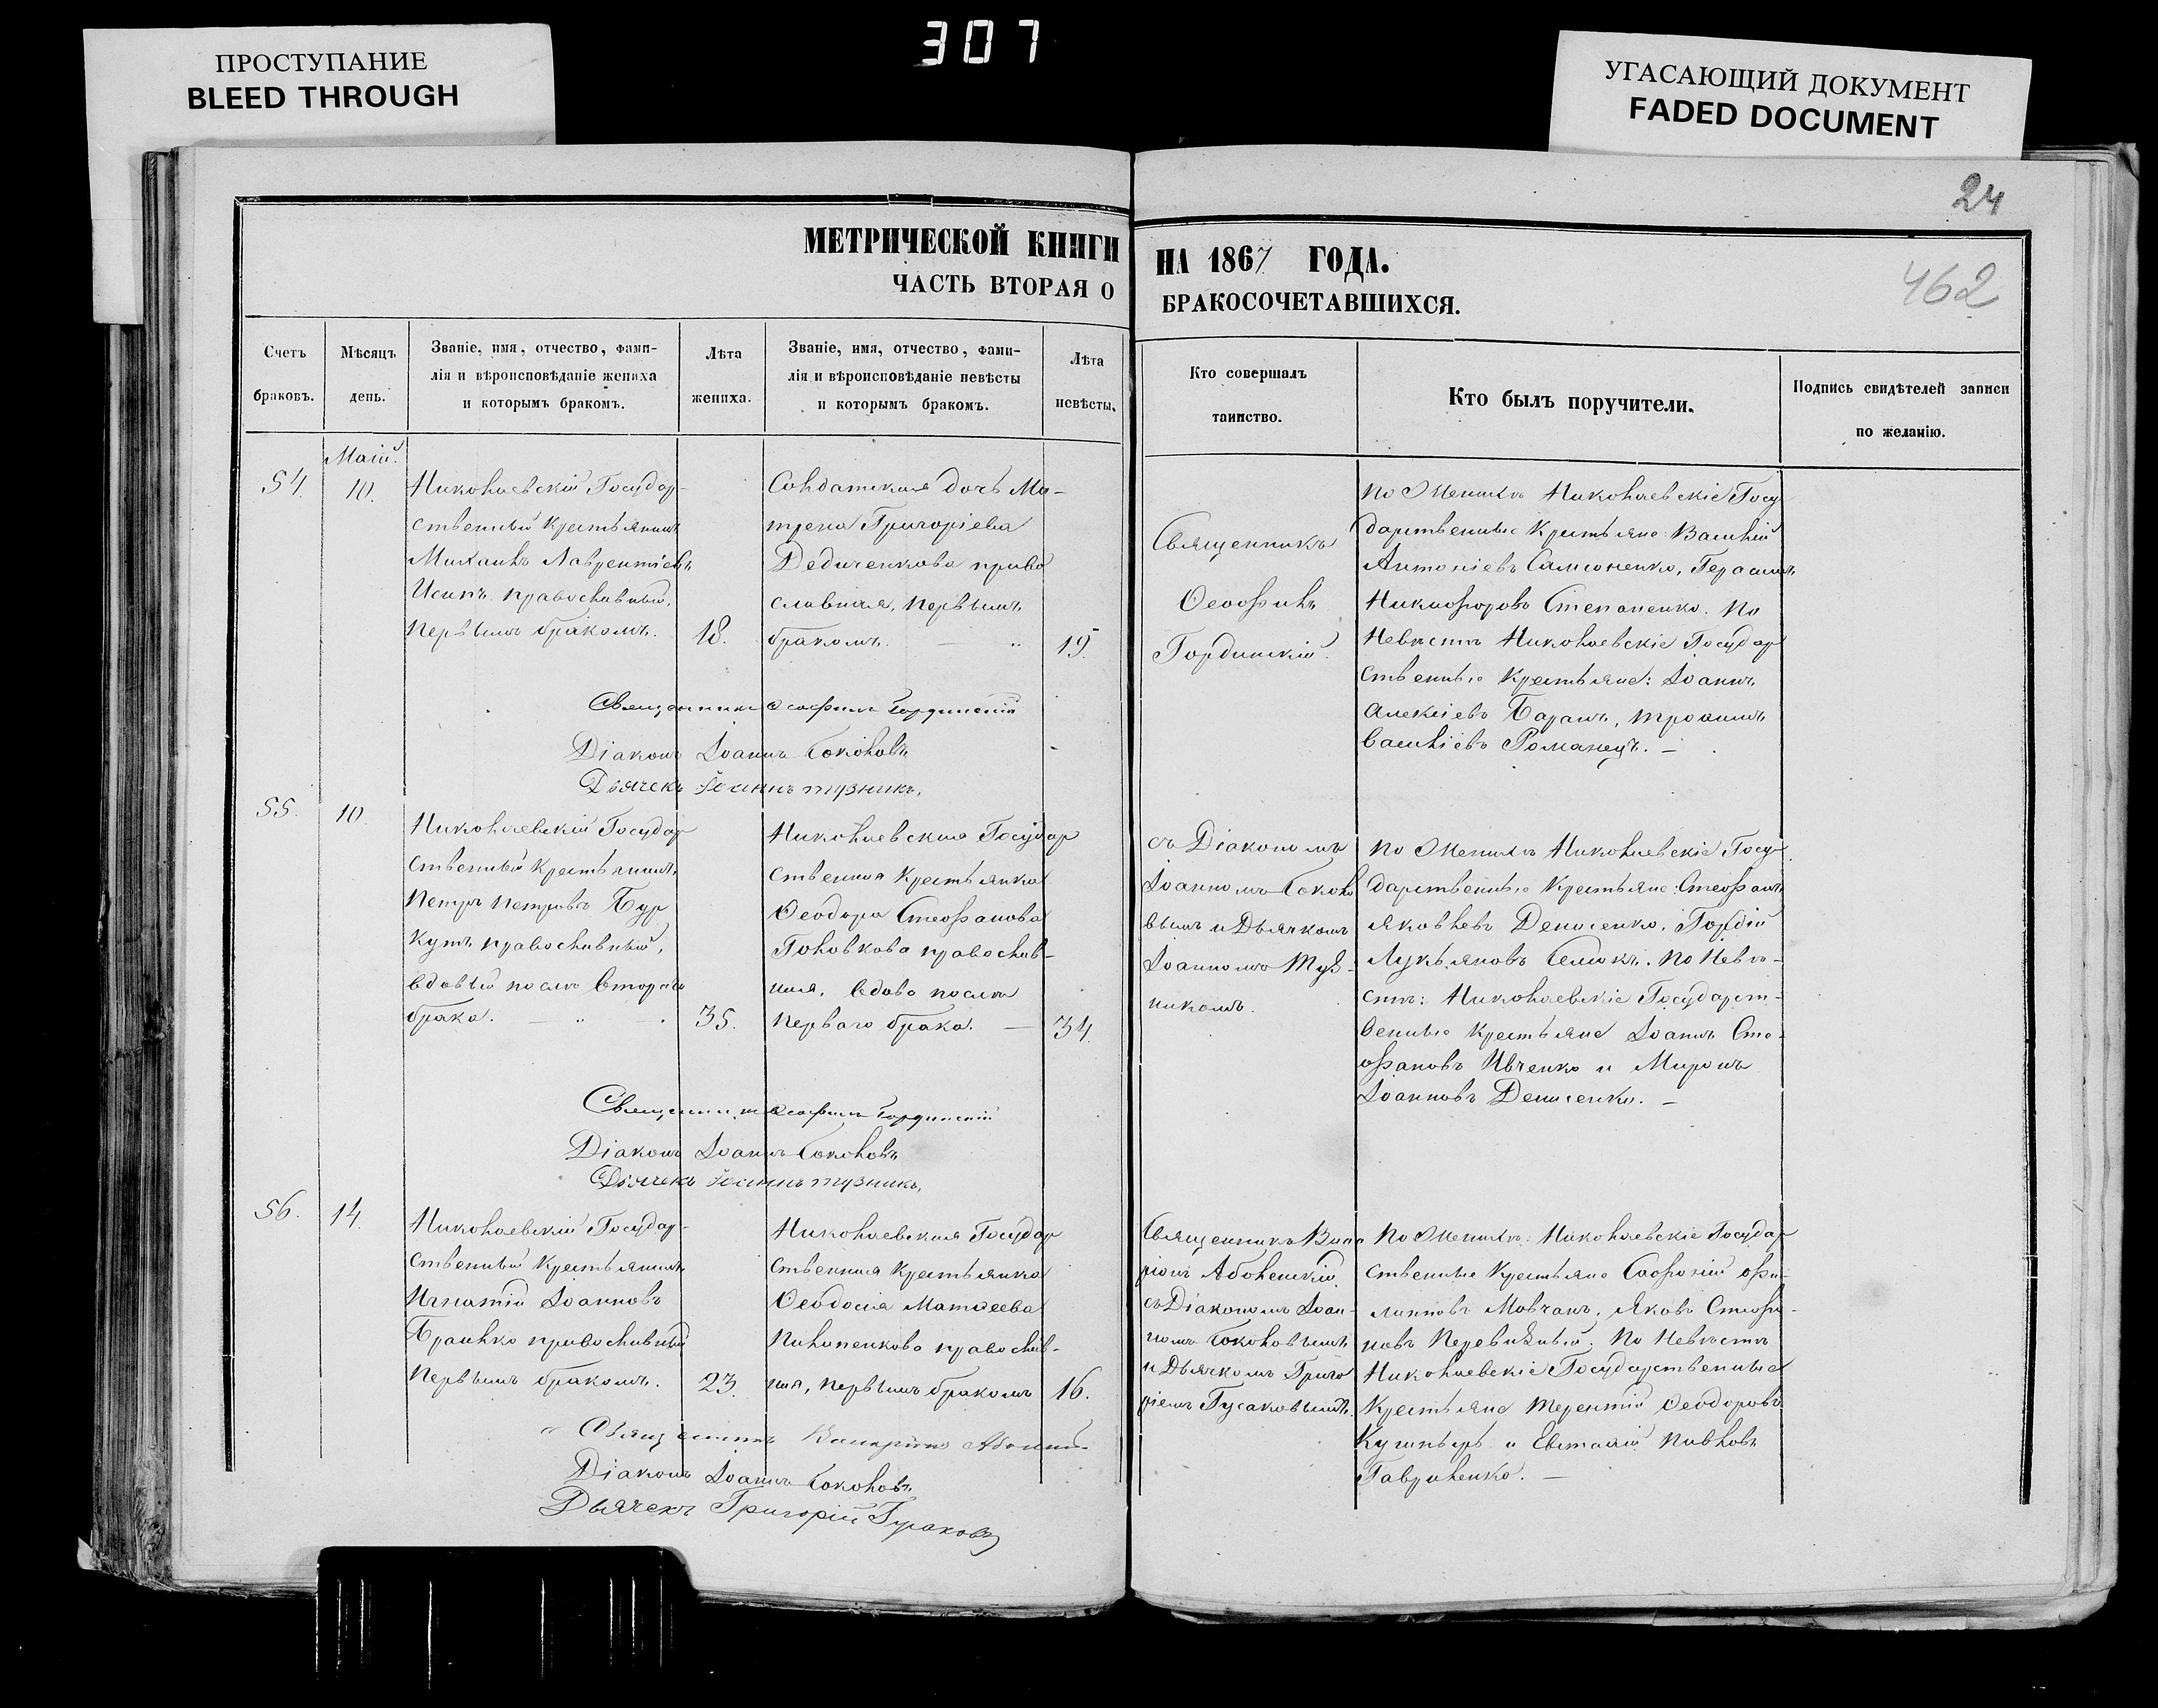 ПРОСТУПАНИЕ
BLEED THROUGH
307
УГАСАЮЩИЙ ДОКУМЕНТ
FADED DOCUMENT
24
462
МЕТРИЧЕСКОЙ КНИГИ НА 1867 ГОДА.
ЧАСТЬ ВТОРАЯ О БРАКОСОЧЕТАВШИХСЯ.
Счетъ
браковъ.
Мѣсяцъ
день.
Званіе, имя, отчество, фами-
лія и вѣроисповѣданіе жениха
и которымъ бракомъ.
Лѣта
жениха.
Званіе, имя, отчество, фами-
лія и вѣроисповѣданіе невѣсты
и которымъ бракомъ.
Лѣта
невѣсты.
Кто совершалъ
таинство.
Кто былъ поручители.
Подпись свидѣтелей записи
по желанію.
Маій.
54.
10.
Николаевскій Государ-
ственный крестьянинъ
Михаилъ Лаврентіевъ
Исипъ православный,
первымъ бракомъ.
18.
Солдатская дочь Ма-
трена Григоріева
Дедиченкова право
славная, первымъ
бракомъ.
19.
Священникъ
Ѳеофилъ
Гординскій.
По Женихѣ Николаевскіе Госу
дарственные крестьяне: Василій
Антоніевъ Самсоненко, Герасимъ
Никифоровъ Степаненко. По
Невѣстѣ Николаевскіе Государ
ственные крестьяне: Іоаннъ
Алексіевъ Баранъ, Трофимъ
Василіевъ Романецъ. —
Священникъ Ѳеофилъ Гординскій
Діаконъ Іоаннъ Соколовъ
Дьячекъ Іоаннъ Тузникъ.
55.
10.
Николаевскій Государ
ственный крестьянинъ
Петръ Петровъ Бур
кутъ православный,
вдовый послѣ втораго
брака.
35.
Николаевская Государ
ственная крестьянка
Ѳеодора Стефанова
Головкова православ-
ная, вдова послѣ
перваго брака. —
34.
съ Діакономъ
Іоанномъ Соколо
вымъ и Дьячкомъ
Іоанномъ Туз-
никомъ.
По Женихѣ Николаевскіе Госу-
дарственные крестьяне: Стефанъ
Яковлевъ Денисенко, Гордій
Лукьяновъ Семокъ. По Невѣ-
стѣ: Николаевскіе Государст-
венные крестьяне Іоаннъ Сте-
фановъ Ивченко и Миронъ
Іоанновъ Денисенко. —
Священникъ Ѳеофилъ Гординскій
Діаконъ Іоаннъ Соколовъ
Дьячекъ Іоаннъ Тузникъ.
56.
14.
Николаевскій Государ-
ственный крестьянинъ
Игнатій Іоанновъ
Браилко православный
первымъ бракомъ.
23.
Николаевская Государ
ственная крестьянка
Ѳеодосія Матѳеева
Пилипенкова православ-
ная, первымъ бракомъ
16.
Священникъ
съ Діакономъ Іоан-
номъ Соколовымъ
и Дьячкомъ Григо
ріемъ Гусаковымъ.
По Женихѣ: Николаевскіе Государ
ственные крестьяне Софроній Фи-
липповъ Мовчанъ, Яковъ Стефа-
новъ. По Невѣстѣ
Николаевскіе Государственные
крестьяне Терентій Ѳеодоровъ
Кушниръ и Евстафій Павловъ
Гавриленко. —
Священникъ
Діаконъ Іоаннъ Соколовъ
Дьячекъ Григорій Гусаковъ